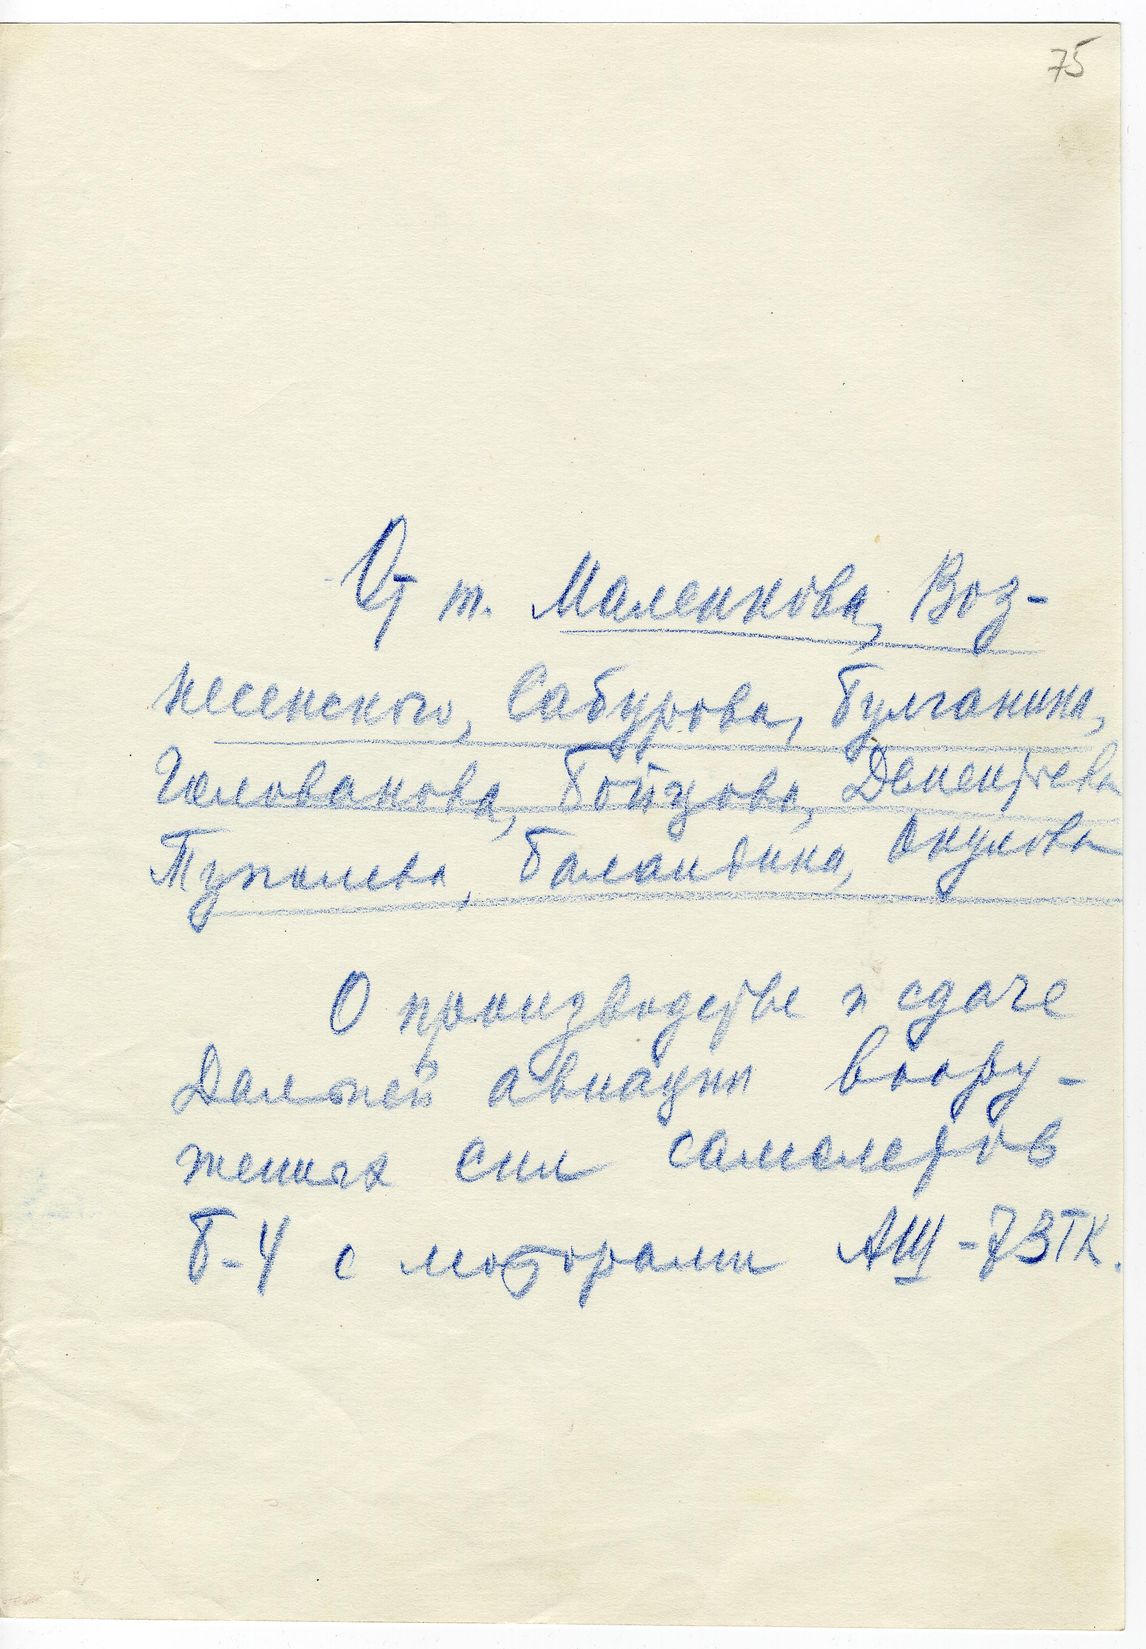 75
От т. Маленкова, Воз-
несенского, Сабурова, Булганина,
Голованова, Бойцова, Дементьева
Туполева, Баландина, Окулова
О производстве и сдаче
Дальней авиации воору-
женных сил самолетов
Б-4 с моторами АШ-73ТК.